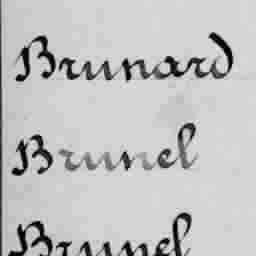 Brunard
Brunel
Brunel